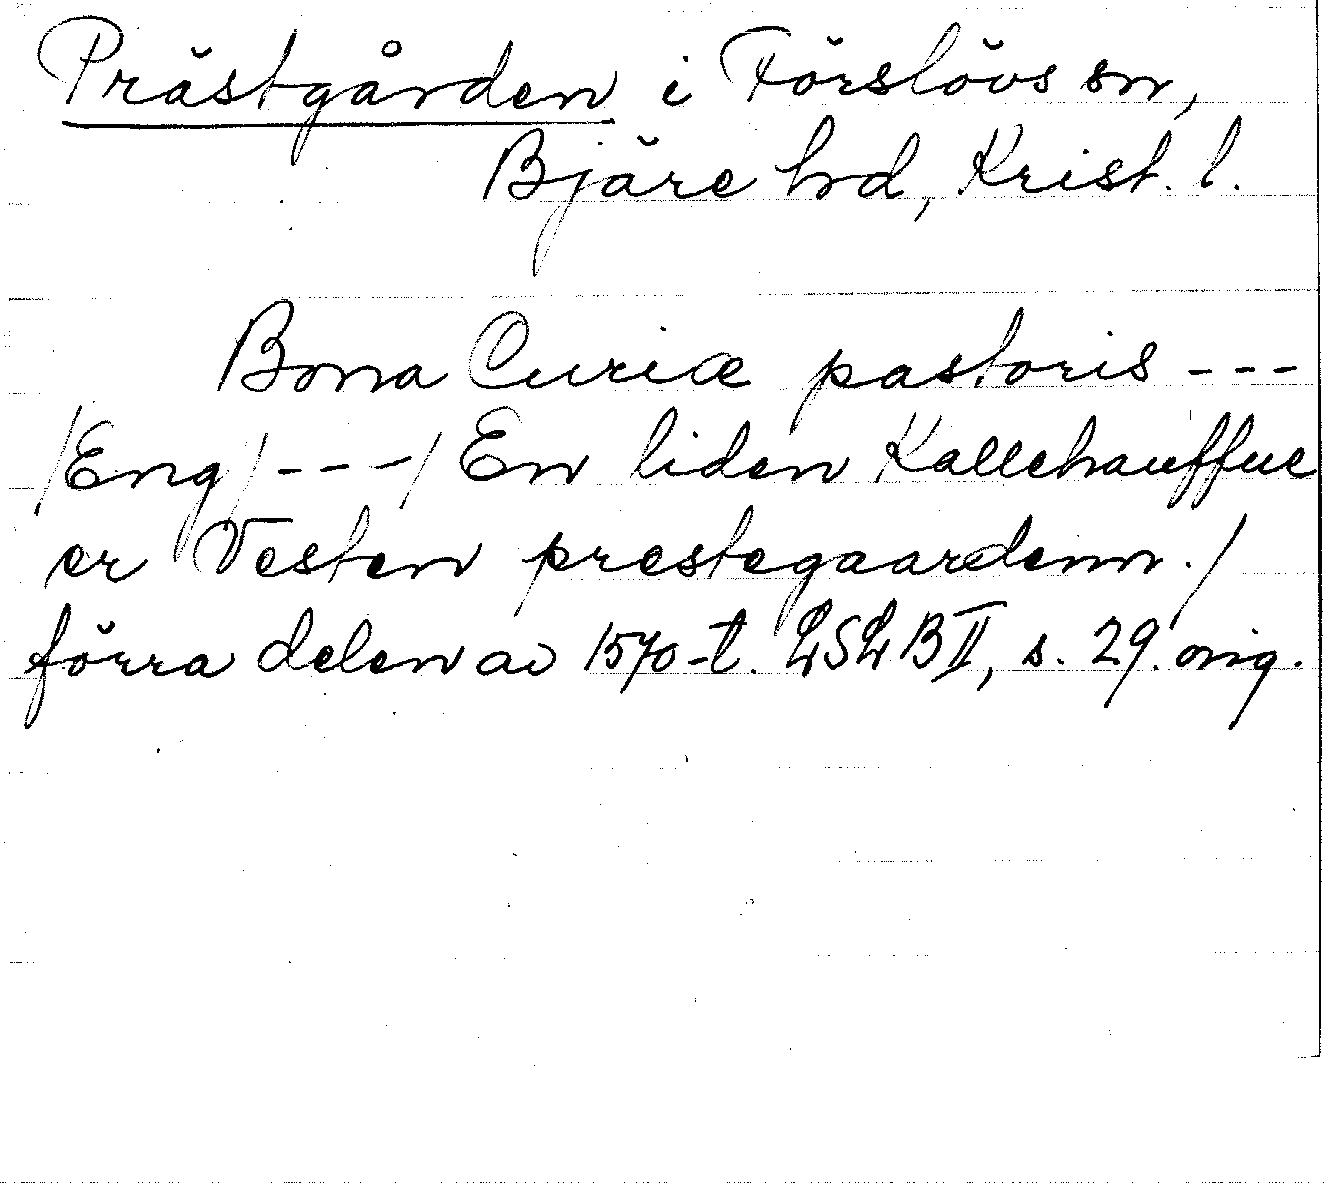 Prästgården i Förslövs sn,
Bjäre hd, Krist. l.
Bona Curiæ pastoris ---
/Eng/---/ En liden Kallehauffue
er Vesten prestegaardenn./
förra delen av 1570-t. LSLB II, s. 29. orig.